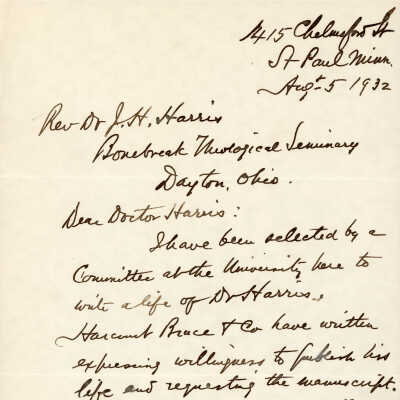 1415 Chelmsford St
St Paul Minn.
Augt. 5 1932
Rev Dr J. H. Harris
Bonebreak Theological Seminary
Dayton, Ohio.
Dear Doctor Harris:
I have been selected by a
Committee at the University here to
write a life of Dr Harris.
Harcourt Brace & Co have written
expressing willingness to publish his
life and requesting the manuscript.